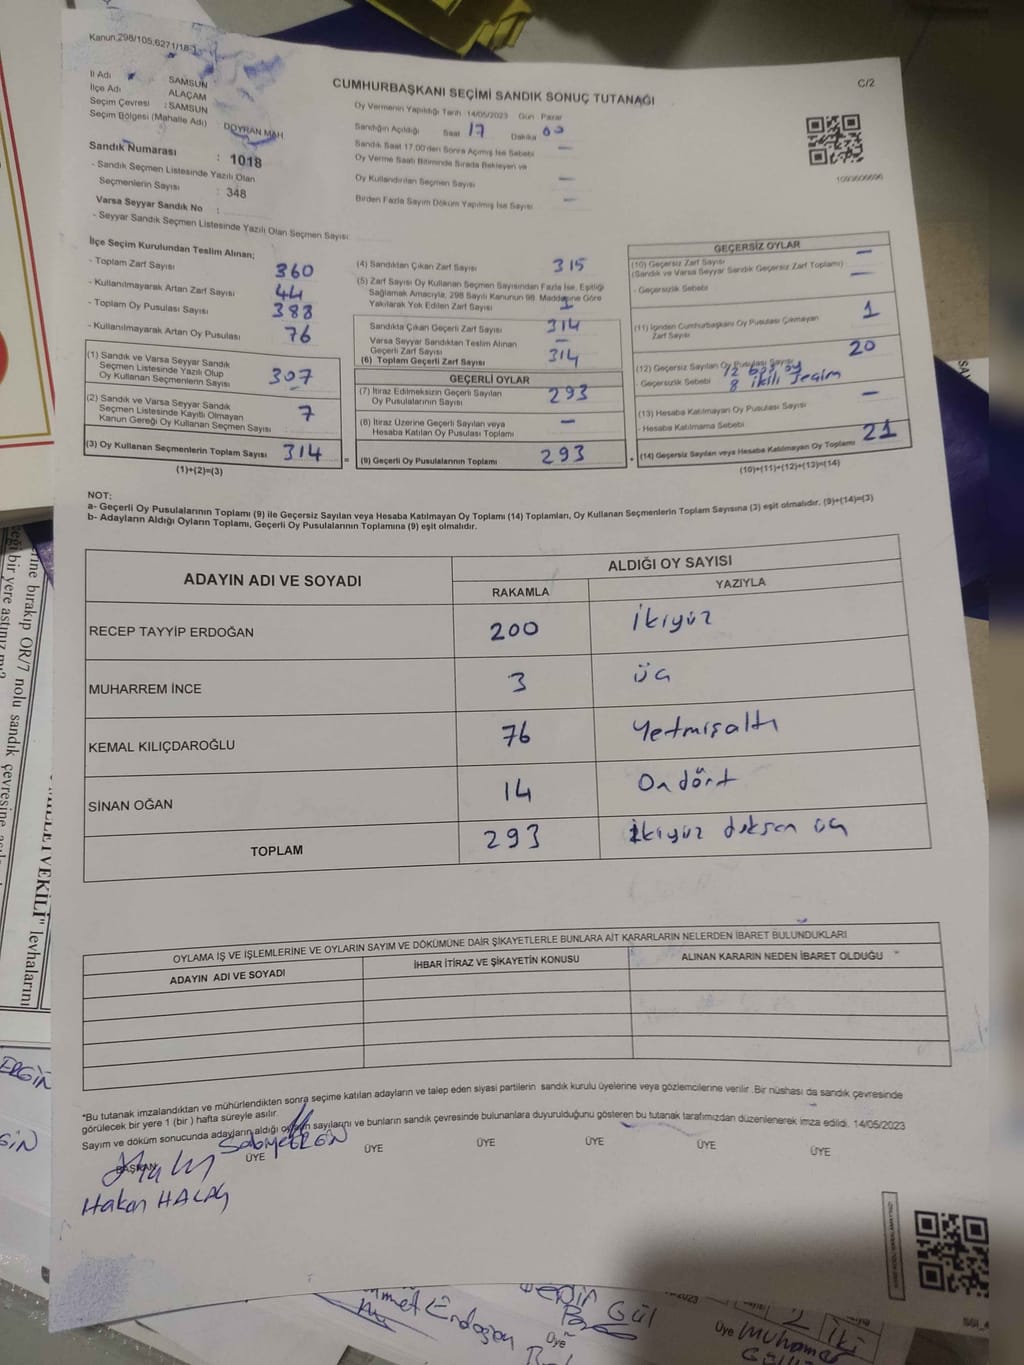 Kanun,298/105,6271/18-1
C/2
CUMHURBAŞKANI SEÇİMİ SANDIK SONUÇ TUTANAĞI
İl Adı : SAMSUN
İlçe Adı : ALAÇAM
Seçim Çevresi : SAMSUN
Seçim Bölgesi (Mahalle Adı) : DOYRAN MAH
Sandık Numarası : 1018
- Sandık Seçmen Listesinde Yazılı Olan
Seçmenlerin Sayısı : 348
Varsa Seyyar Sandık No :
- Seyyar Sandık Seçmen Listesinde Yazılı Olan Seçmen Sayısı:
Oy Vermenin Yapıldığı Tarih :14/05/2023 Gün Pazar
Sandığın Açıldığı Saat 17 Dakika 00
Sandık Saat 17.00'den Sonra Açılmış İse Sebebi —
Oy Verme Saati Bitiminde Sırada Bekleyen ve
Oy Kullandırılan Seçmen Sayısı —
Birden Fazla Sayım Döküm Yapılmış İse Sayısı —
1093606696
İlçe Seçim Kurulundan Teslim Alınan;
- Toplam Zarf Sayısı 360
- Kullanılmayarak Artan Zarf Sayısı 44
- Toplam Oy Pusulası Sayısı 388
- Kullanılmayarak Artan Oy Pusulası 76
(1) Sandık ve Varsa Seyyar Sandık
Seçmen Listesinde Yazılı Olup
Oy Kullanan Seçmenlerin Sayısı 307
(2) Sandık ve Varsa Seyyar Sandık
Seçmen Listesinde Kayıtlı Olmayan
Kanun Gereği Oy Kullanan Seçmen Sayısı 7
(3) Oy Kullanan Seçmenlerin Toplam Sayısı 314 =
(1)+(2)=(3)
(4) Sandıktan Çıkan Zarf Sayısı 315
(5) Zarf Sayısı Oy Kullanan Seçmen Sayısından Fazla İse, Eşitliği
Sağlamak Amacıyla, 298 Sayılı Kanunun 98. Maddesine Göre
Yakılarak Yok Edilen Zarf Sayısı 1
Sandıkta Çıkan Geçerli Zarf Sayısı 314
Varsa Seyyar Sandıktan Teslim Alınan
Geçerli Zarf Sayısı —
(6) Toplam Geçerli Zarf Sayısı 314
GEÇERLİ OYLAR
(7) İtiraz Edilmeksizin Geçerli Sayılan
Oy Pusulalarının Sayısı 293
(8) İtiraz Üzerine Geçerli Sayılan veya
Hesaba Katılan Oy Pusulası Toplamı —
(9) Geçerli Oy Pusulalarının Toplamı 293 +
GEÇERSİZ OYLAR
(10) Geçersiz Zarf Sayısı —
(Sandık ve Varsa Seyyar Sandık Geçersiz Zarf Toplamı) —
- Geçersizlik Sebebi
(11) İçinden Cumhurbaşkanı Oy Pusulası Çıkmayan
Zarf Sayısı 1
(12) Geçersiz Sayılan Oy Pusulası Sayısı 20
- Geçersizlik Sebebi 12 boş oy
8 ikili seçim
(13) Hesaba Katılmayan Oy Pusulası Sayısı —
- Hesaba Katılmama Sebebi
(14) Geçersiz Sayılan veya Hesaba Katılmayan Oy Toplamı 21
(10)+(11)+(12)+(13)=(14)
NOT:
a- Geçerli Oy Pusulalarının Toplamı (9) ile Geçersiz Sayılan veya Hesaba Katılmayan Oy Toplamı (14) Toplamları, Oy Kullanan Seçmenlerin Toplam Sayısına (3) eşit olmalıdır. (9)+(14)=(3)
b- Adayların Aldığı Oyların Toplamı, Geçerli Oy Pusulalarının Toplamına (9) eşit olmalıdır.
ADAYIN ADI VE SOYADI
ALDIĞI OY SAYISI
RAKAMLA YAZIYLA
RECEP TAYYİP ERDOĞAN 200 İkiyüz
MUHARREM İNCE 3 üç
KEMAL KILIÇDAROĞLU 76 Yetmişaltı
SİNAN OĞAN 14 Ondört
TOPLAM 293 İkiyüz doksan üç
OYLAMA İŞ VE İŞLEMLERİNE VE OYLARIN SAYIM VE DÖKÜMÜNE DAİR ŞİKAYETLERLE BUNLARA AİT KARARLARIN NELERDEN İBARET BULUNDUKLARI
ADAYIN ADI VE SOYADI İHBAR İTİRAZ VE ŞİKAYETİN KONUSU ALINAN KARARIN NEDEN İBARET OLDUĞU
*Bu tutanak imzalandıktan ve mühürlendikten sonra seçime katılan adayların ve talep eden siyasi partilerin sandık kurulu üyelerine veya gözlemcilerine verilir. Bir nüshası da sandık çevresinde
görülecek bir yere 1 (bir ) hafta süreyle asılır.
Sayım ve döküm sonucunda adayların aldığı oyların sayılarını ve bunların sandık çevresinde bulunanlara duyurulduğunu gösteren bu tutanak tarafımızdan düzenlenerek imza edildi. 14/05/2023
BAŞKAN ÜYE ÜYE ÜYE ÜYE ÜYE ÜYE
Sabiye ERGİN
Hakan HALAÇ
rine bırakıp OR/7 nolu sandık çevresine
LLETVEKİLİ" levhalarını
ERGİN
Ahmet Erdoğan
Gül
Üye
Üye